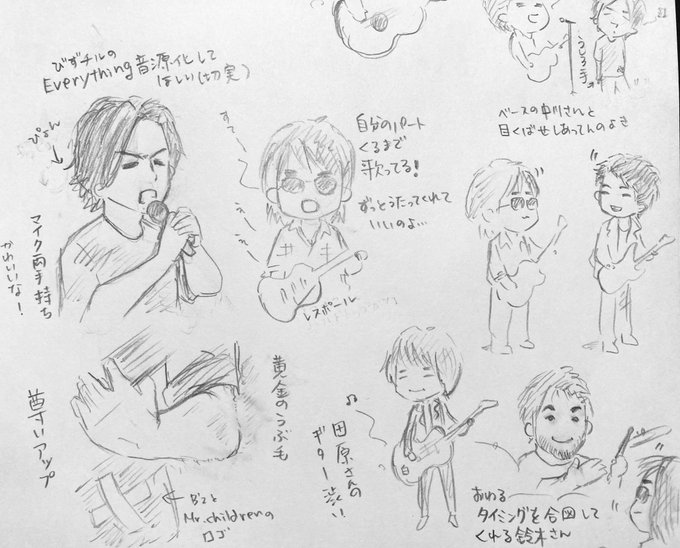 びずチルの
Everything音源化して
ほしい(切実)
ぴょん
マイク両手持ち
かわいいな!
すて〜
え〜
え〜
自分のパート
くるまで
歌ってる!
ずっとうたってくれて
いいのよ…
レスポール
うしろ手
ベースの中川さんと
目くばせしあってんのよき
黄金のうぶ毛
尊いアップ
B'zと
Mr.childrenの
ロゴ
田原さんの
ギター渋い
おわる
タイミングを合図して
くれる鈴木さん